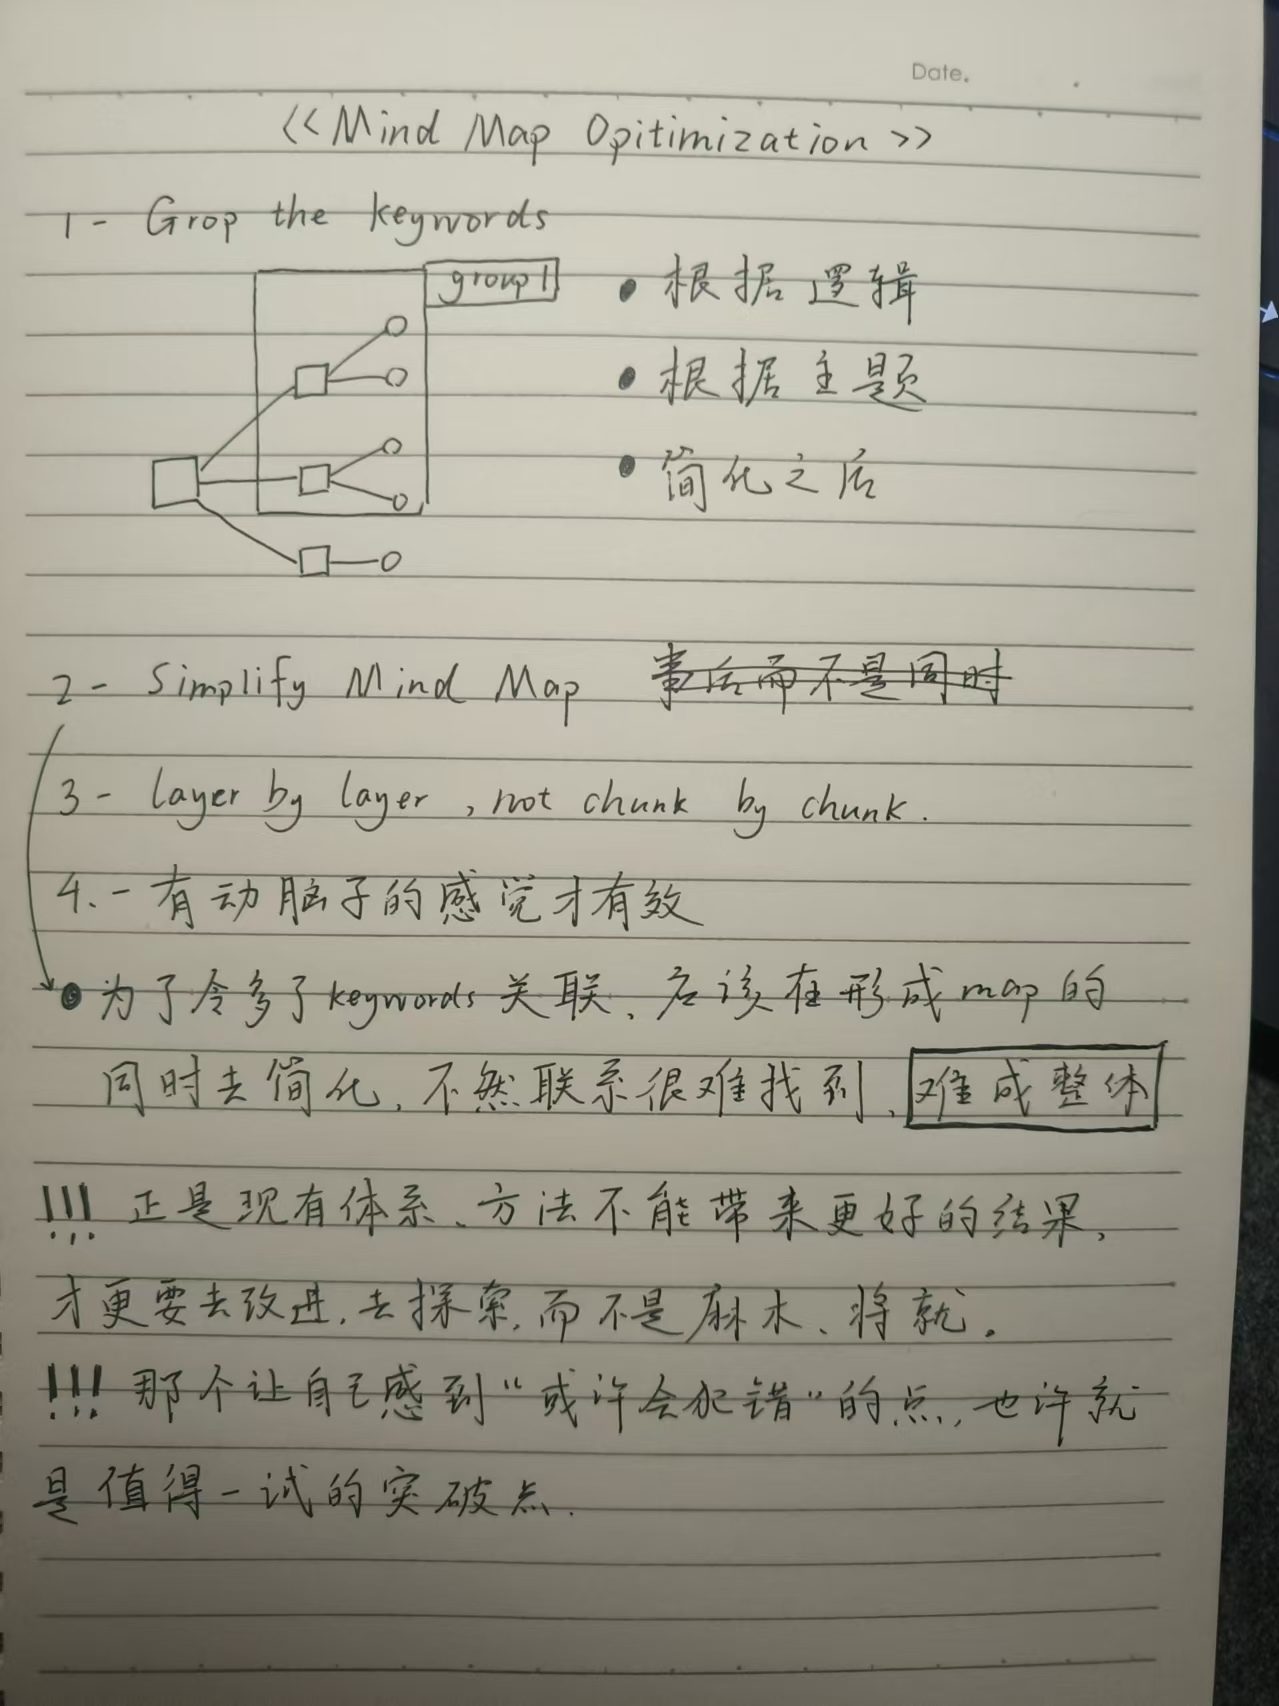 Date.
<<Mind Map Opitimization>>
1- Grop the keywords
group1
• 根据逻辑
• 根据主题
• 简化之后
2- Simplify Mind Map 事后而不是同时
3- layer by layer, not chunk by chunk.
4.-有动脑子的感觉才有效
• 为了令多了keywords关联、应该在形成map的
同时去简化,不然联系很难找到、难成整体
!!! 正是现有体系、方法不能带来更好的结果,
才更要去改进,去探索,而不是麻木、将就。
!!! 那个让自己感到“或许会犯错”的点,也许就
是值得一试的突破点.